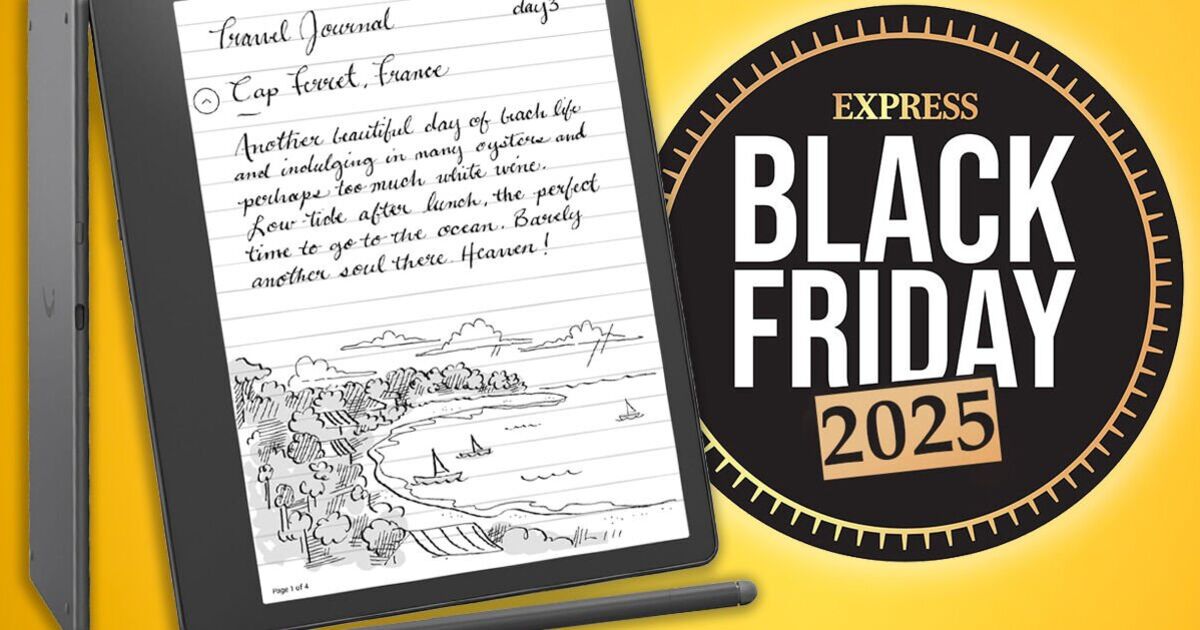 Travel Journal
day 3
Cap Ferret, France
Another beautiful day of beach life
and indulging in many oysters and
perhaps too much white wine.
Low-tide after lunch, the perfect
time to go to the ocean. Barely
another soul there. Heaven!
Page 1 of 4
EXPRESS
BLACK
FRIDAY
2025